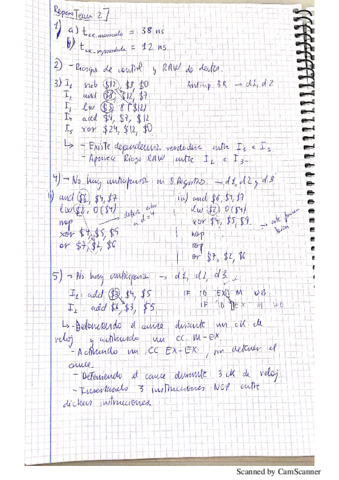 Repaso Tema 2
1) a) tcc_monociclo = 38 ns
b) tcc_segmentado = 12 ns
2) - Riesgos de control y RAW de datos.
3) I1 sub $12, $8, $0
I2 and $3, $12, $7
I3 lw $3, 8($12)
I4 add $4, $7, $12
I5 xor $24, $12, $0
↳ - Existe dependencia verdadera entre I1 e I2
- Aparece Riesgo RAW entre I1 e I3.
4) → No hay anticipación ni → d1, d2 y d3
nop
xor $4, $5, $5
or $7, $2, $6
nop
nop
or $7, $2, $6
5) → No hay anticipación → d1, d2, d3
I1: add $3, $4, $5 IF ID EX M WB
I2: add $6, $3, $5 IF ID EX M WB
↳ - Deteniendo el cauce durante un ck de
reloj y activando un CC M-EX
- Activando un CC EX-EX, sin detener el
cauce
- Deteniendo el cauce durante 3 ck de reloj.
- Insertando 3 instrucciones NOP entre
dichas instrucciones
Scanned by CamScanner